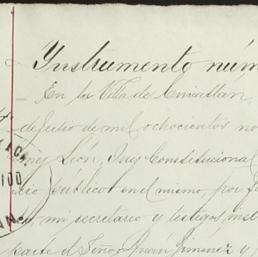 Instrumento núm
En la Villa de Cuicatlan,
de Julio de mil ochocientos no
León, Juez Constitucional
público en el mismo, por f
mi secretario y testigos ins
parte el Señor Juan Jimenez y